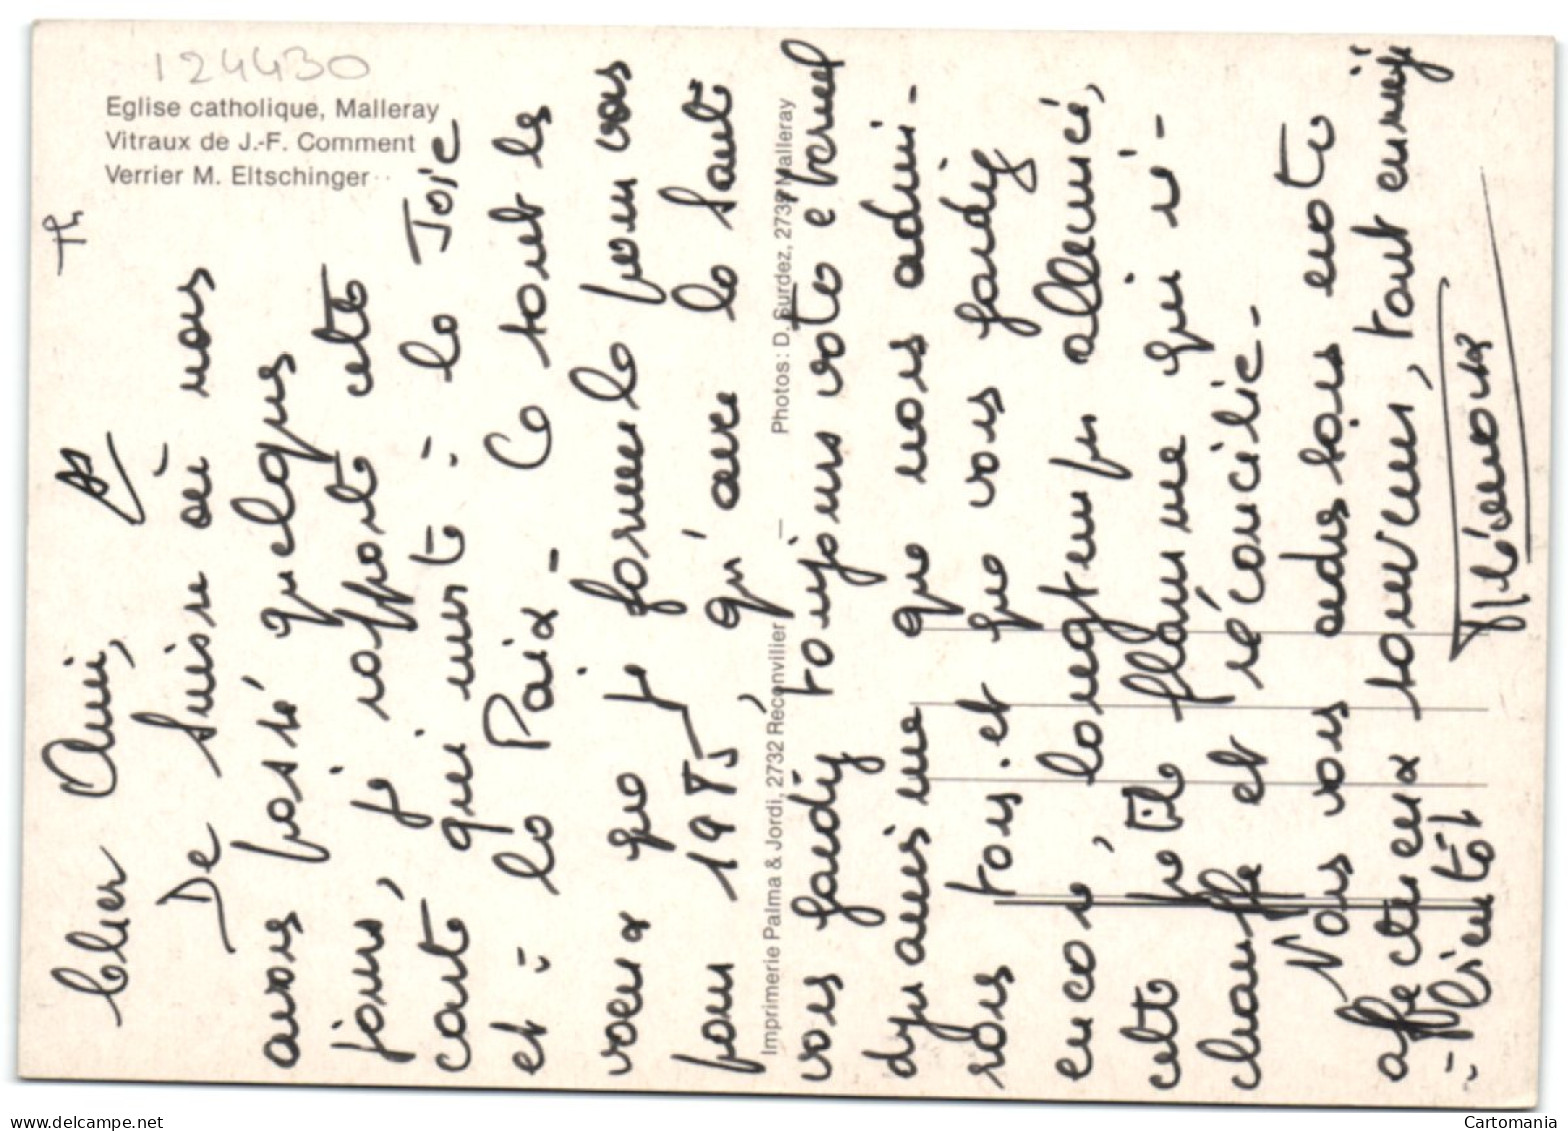 124430
Eglise catholique, Malleray
Vitraux de J.-F. Comment
Verrier M. Eltschinger
Imprimerie Palma & Jordi, 2732 Reconvilier — Photos: D. Surdez, 2735 Malleray
Cher Ami,
De Suisse où nous
avons passé quelques
jours, je rapporte cette
carte qui unit : la Joie
et : la Paix - Ce sont les
voeux que je formule pour vous
pour 1985, qu'avec la Santé
vous gardiez toujours votre éternel
dynamisme que nous admi-
rons tous. et que vous gardiez
encore, longtemps allumée,
cette petite flamme qui ré-
chauffe et réconcilie -
Nous vous adressons notre
affectueux souvenir, tout ennuyé
- A bientôt
Cartomania
delcampe.net